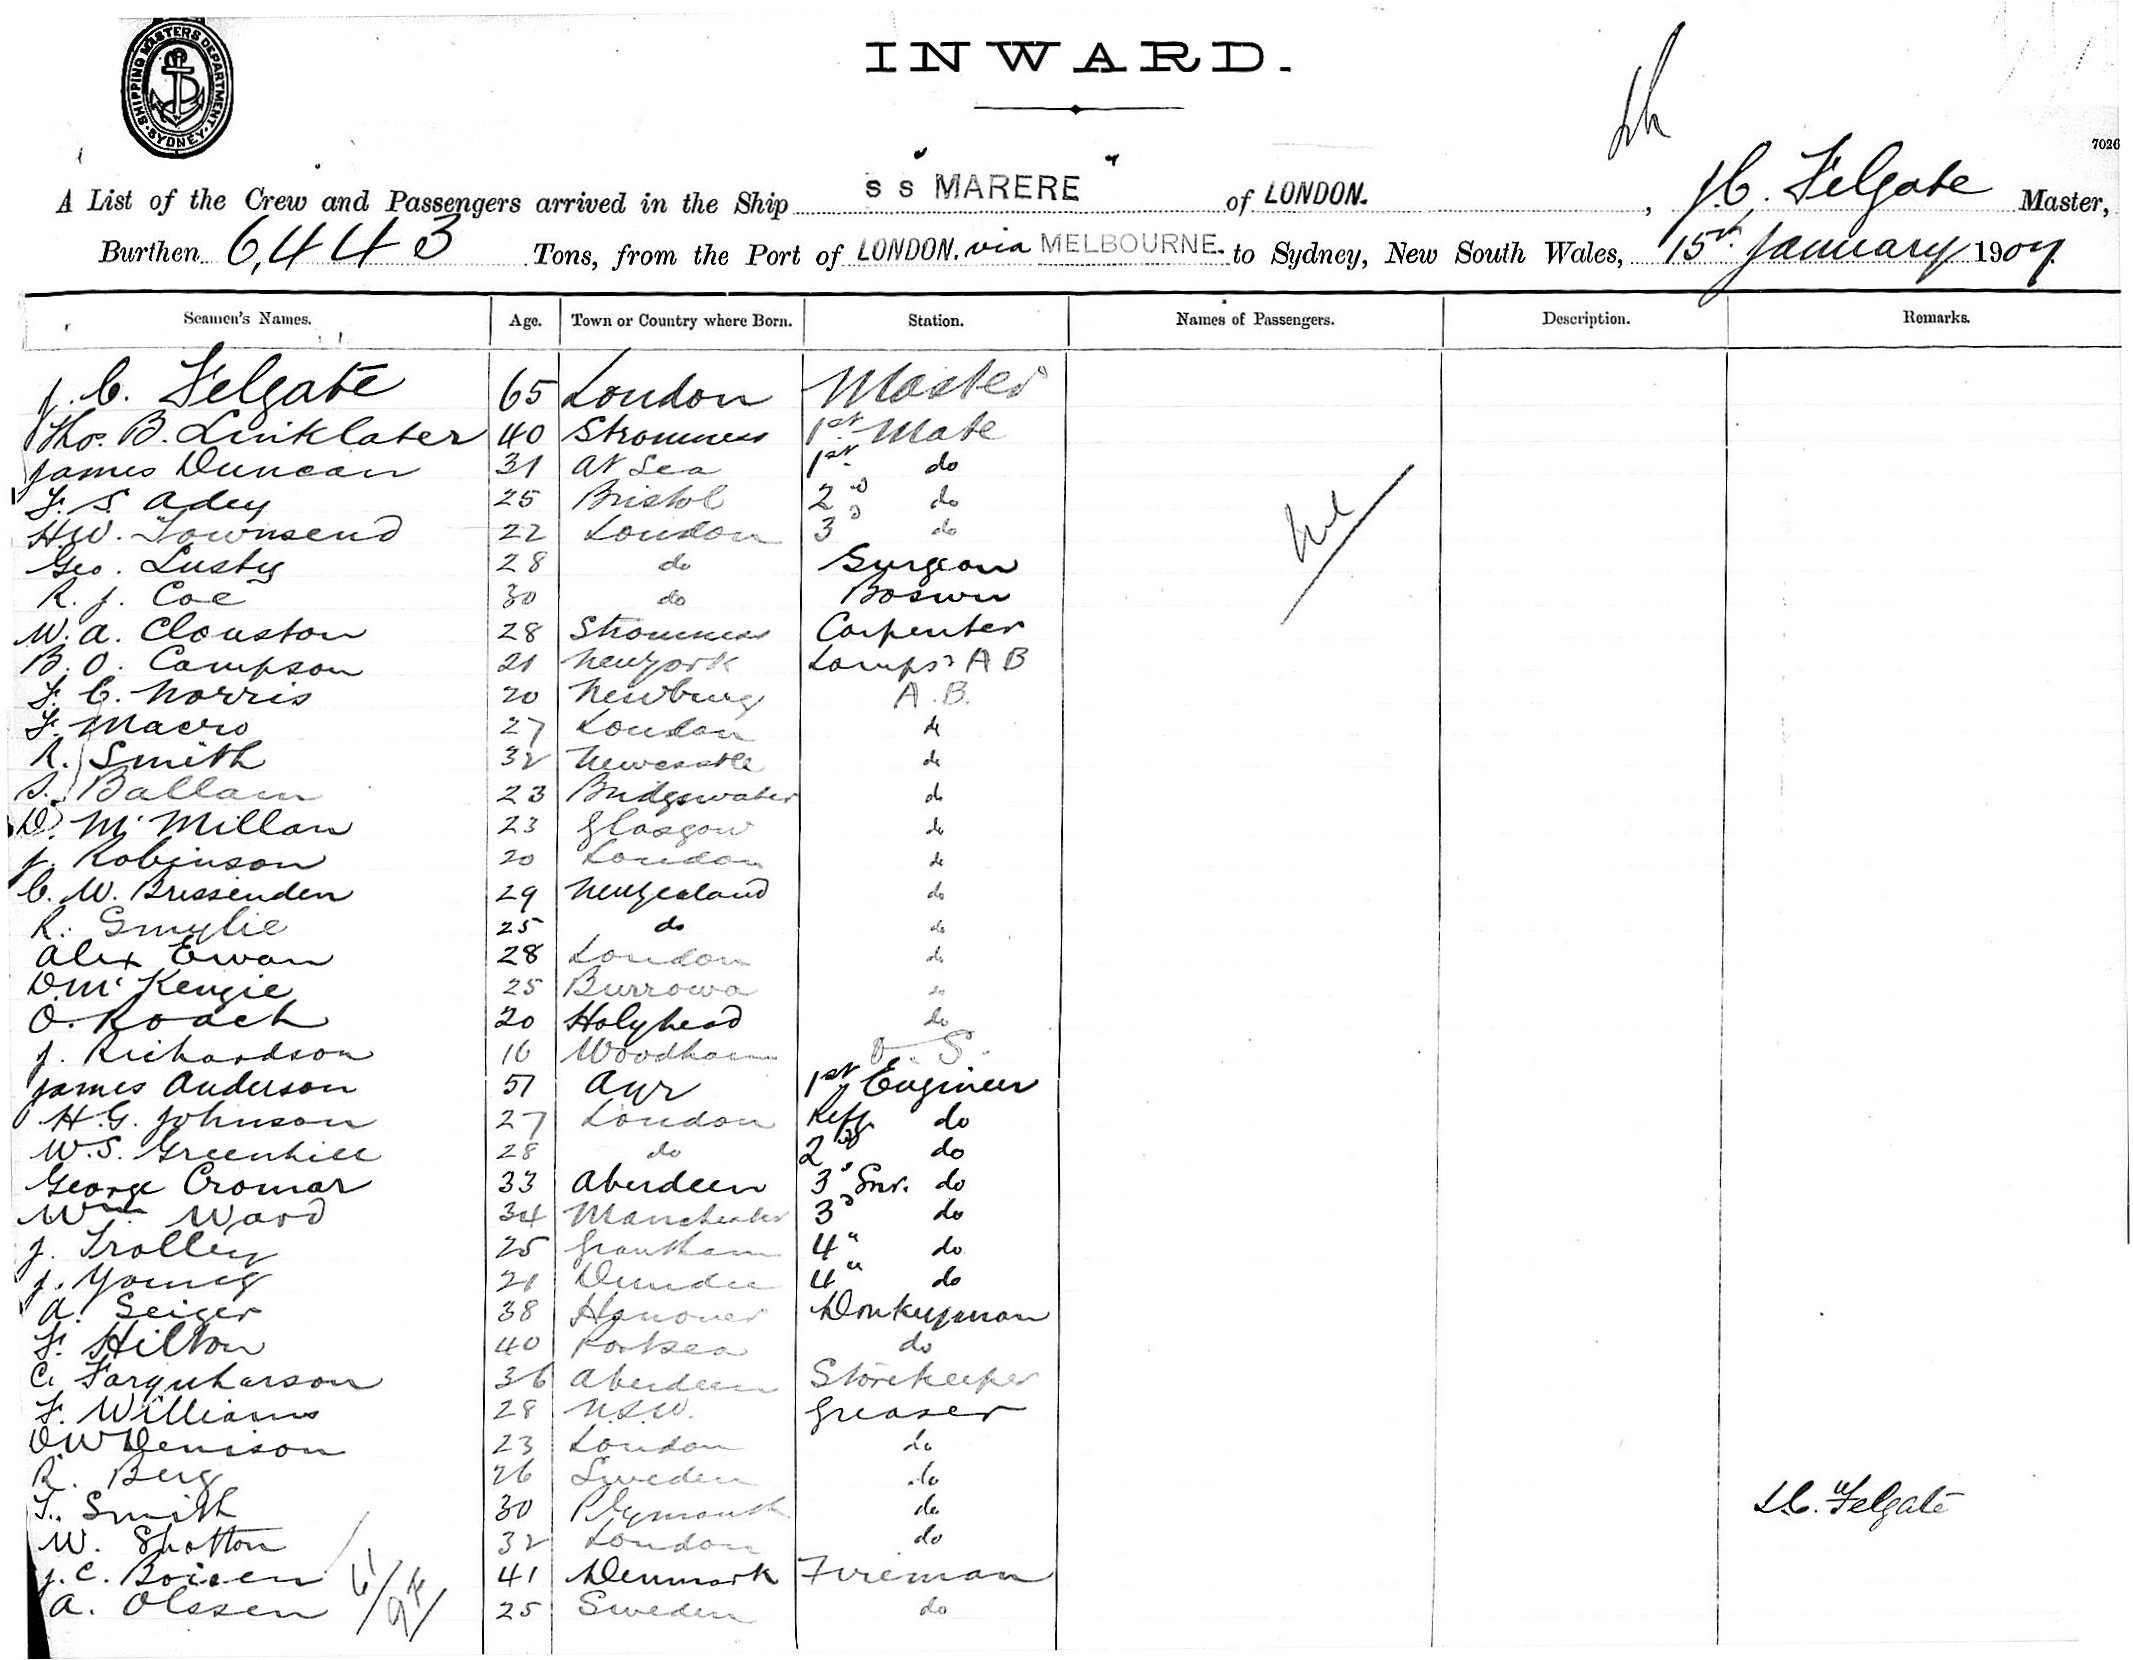 SHIPPING MASTERS DEPARTMENT · SYDNEY ·
INWARD.
7026
A List of the Crew and Passengers arrived in the Ship "S S MARERE" of LONDON. , J.C. Felgate Master,
Burthen 6,443 Tons, from the Port of LONDON. via MELBOURNE. to Sydney, New South Wales, 15th January 1907
Seamen's Names. Age. Town or Country where Born. Station. Names of Passengers. Description. Remarks.
J. C. Felgate 65 London Master
Thos. B. Linklater 40 Stromness 1st Mate
James Duncan 31 At Sea 1st do
F. S. Adey 25 Bristol 2nd do
H.W. Townsend 22 London 3d do
Nil
Geo. Lusty 28 do Surgeon
R. J. Coe 30 do Boswn
W. A. Clouston 28 Stromness Carpenter
B. O. Campson 21 New York Lamps & AB
F. C. Norris 20 Newburg A.B.
F. Macro 27 London do
R. Smith 32 Newcastle do
S. Ballam 23 Bridgewater do
D. McMillan 23 Glasgow do
J. Robinson 20 London do
C. W. Brissenden 29 New Zealand do
R. Smylie 25 do do
Alex Ewan 28 London do
D McKenzie 25 Burrowa do
O. Roach 20 Holyhead do
J. Richardson 16 Woodham O. S.
James Anderson 51 Ayr 1st Engineer
H.G. Johnson 27 London Refg. do
W.S. Greenhill 28 do 2nd do
George Cromar 33 Aberdeen 3d Snr. do
Wm. Ward 34 Manchester 3d do
J. Trolley 25 Grantham 4" do
J. Young 21 Dundee 4" do
A. Seiger 38 Hanover Donkeyman
F. Hilton 40 Portsea do
C. Farquharson 36 Aberdeen Storekeeper
F. Williams 28 N.S.W. Greaser
D W Denison 23 London do
R. Berg 26 Sweden do
T. Smith 30 Plymouth do
J.C. Felgate
W. Shotton 32 London do
J. C. Boisen 41 Denmark Fireman
A. Olssen 25 Sweden do